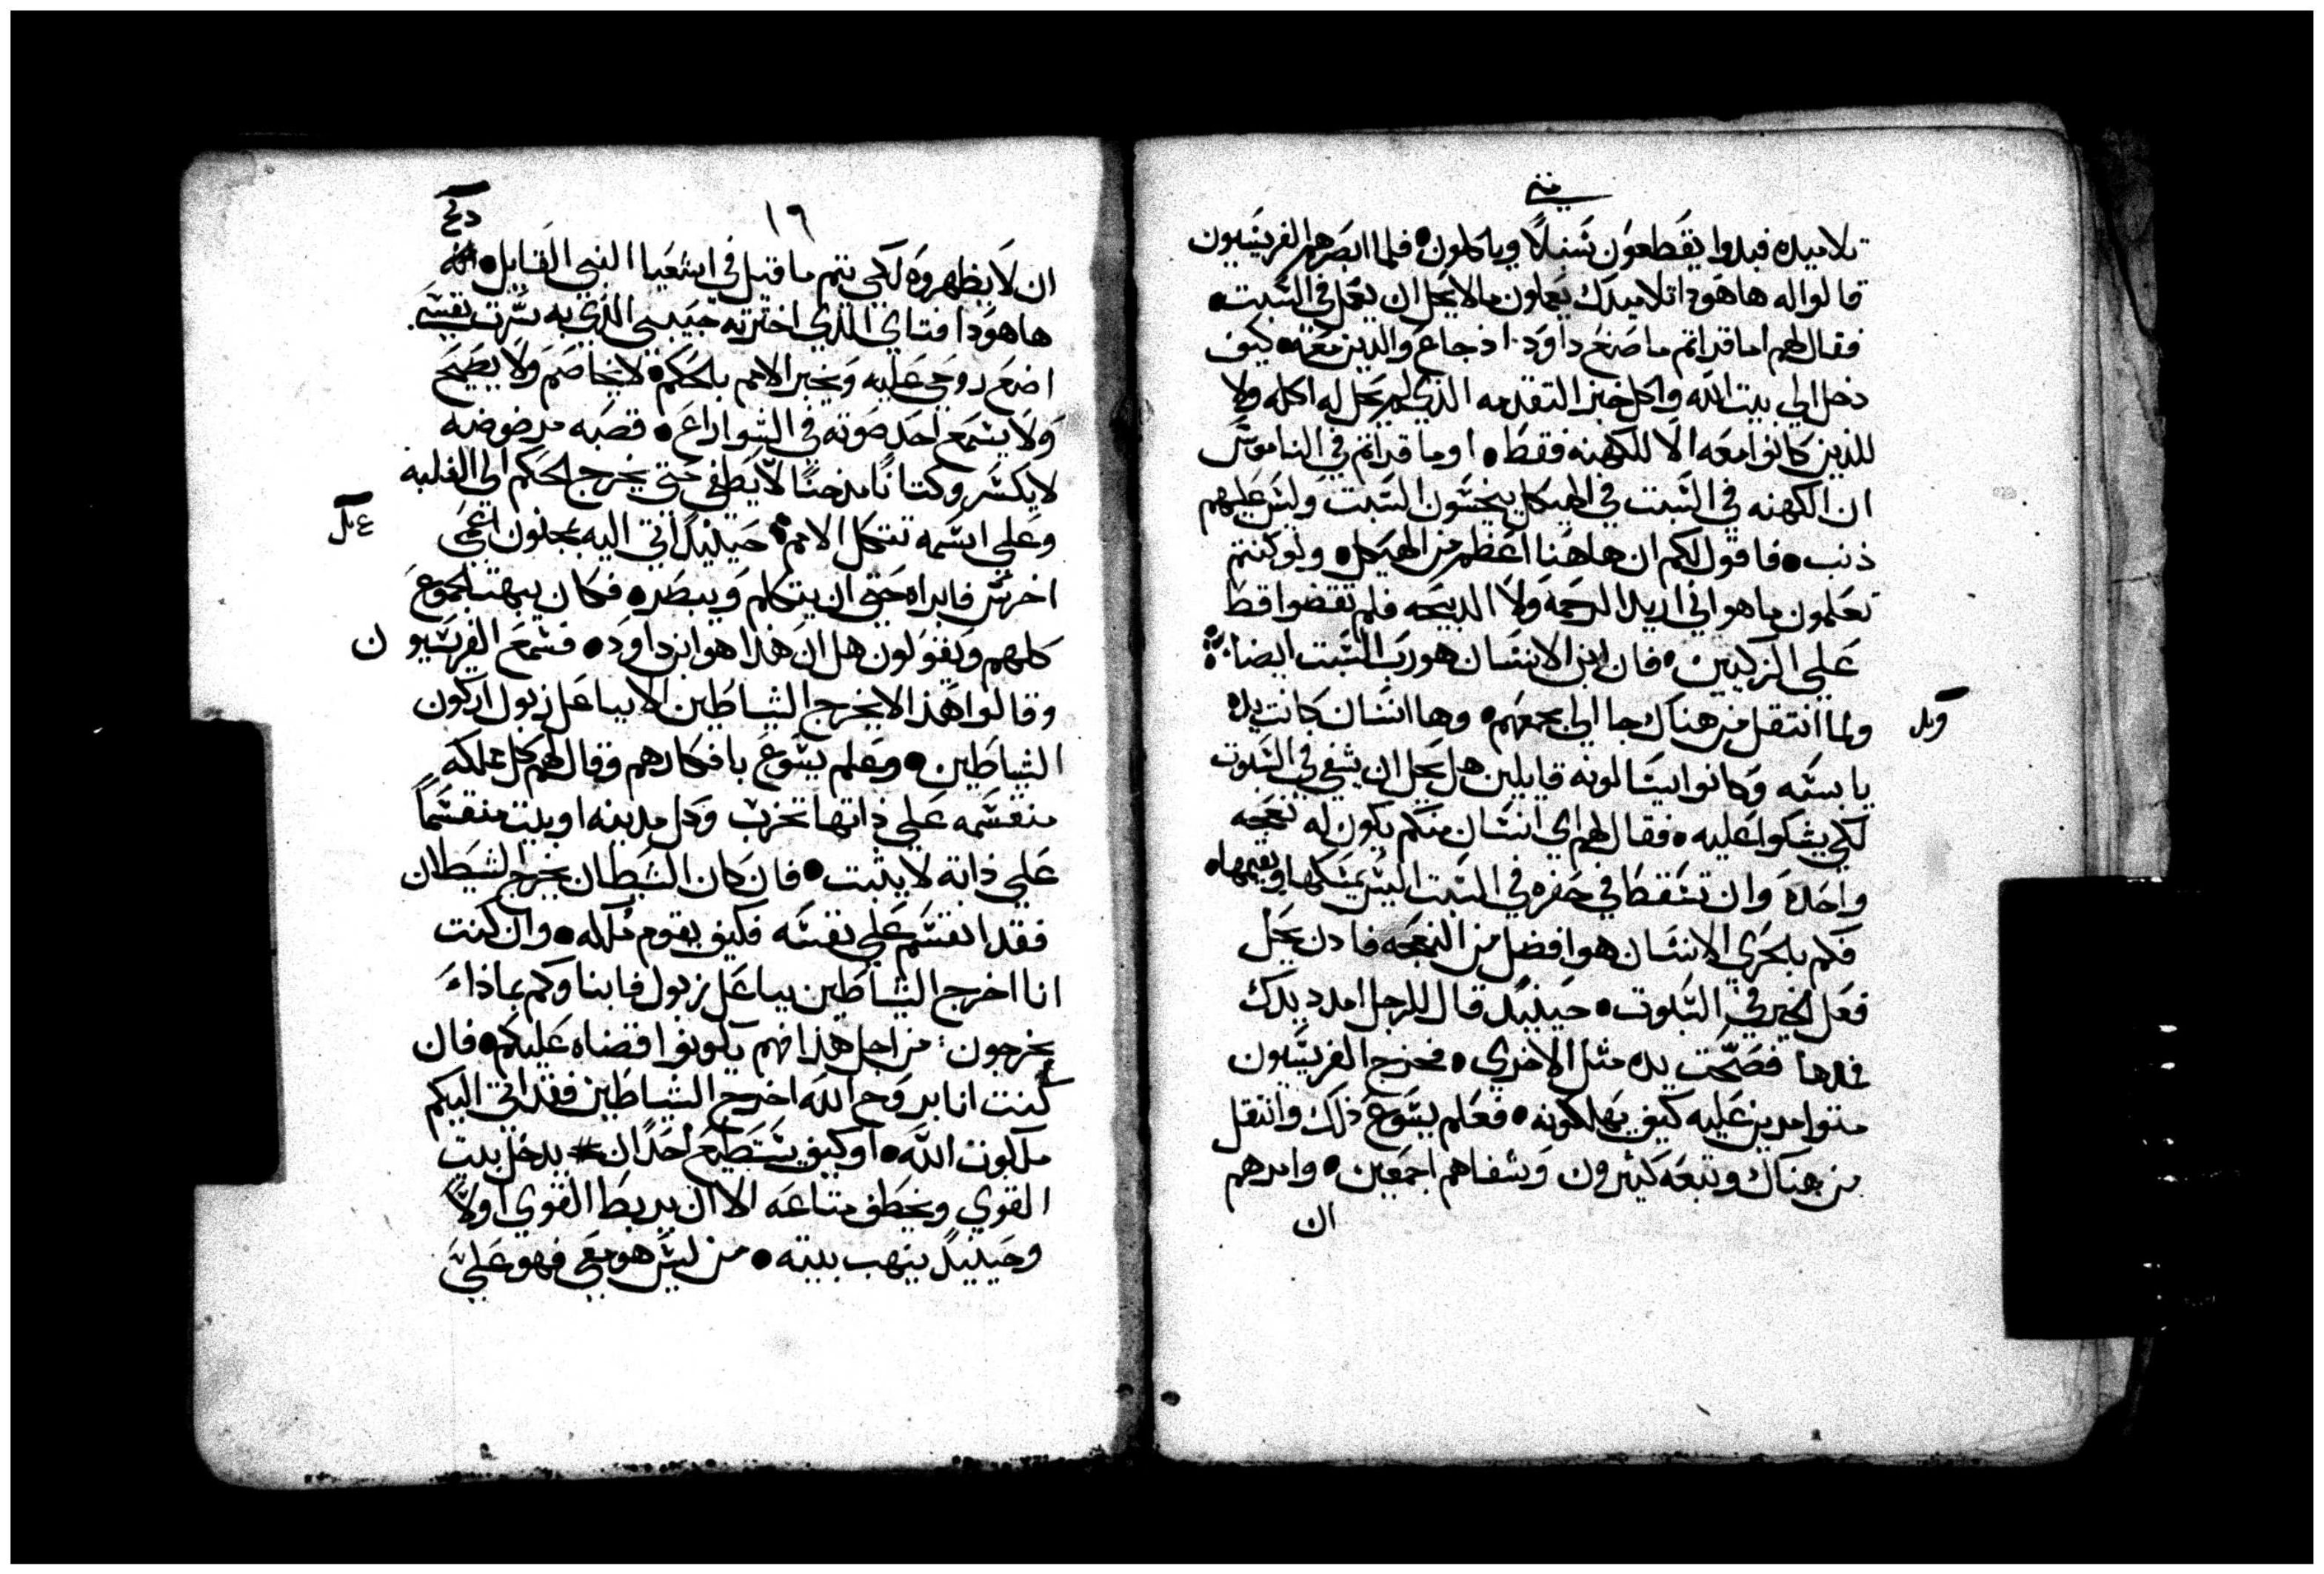 متى
تلاميده فبدوا يقطعون سنبلاً وياكلون • فلما ابصرهم الفريسيون
قالوا له هاهودا تلاميدك يعملون مالا يحل ان يعمل في السبت •
فقال لهم اما قراتم ما صنع داود اذ جاع والدين معه • كيف
دخل الي بيت الله واكل خبز التقدمه الذي لم يحل له اكله ولا
للذين كانوا معه الا للكهنه فقط • اوما قراتم في الناموس
ان الكهنه في السبت في الهيكل ينجسون السبت وليس عليهم
ذنب • فاقول لكم ان هاهنا اعظم من الهيكل • ولو كنتم
تعلمون ما هو اني اريد الرحمه ولا الدبيحه فلم تقضوا قط
علي الزكيين • فان ابن الانسان هو رب السبت ايضا
ولما انتقل من هناك جا الي مجمعهم • وها انسان كانت يده
يابسه وكانوا يسالونه قايلين هل يحل ان يشفي في السبوت
لكي يشكوا عليه • فقال لهم اي انسان منكم يكون له نعجه
واحده وان تسقط في حفره في السبت اليس يمسكها ويقيمها •
فكم بالحري الانسان هو افضل من النعجه فادن يحل
فعل الخير في السبوت • حينيد قال للرجل امدد يدك
فمدها فصحت يده مثل الاخري • فخرج الفريسيون
متوامرين عليه كيف يهلكونه • فعلم يسوع ذلك وانتقل
من هناك وتبعه كثيرون وشفاهم اجمعين • وامرهم
ان
١٩
ان لا يظهروه لكي يتم ما قيل في اشعيا النبي القايل •
هاهودا فتاي الذي اخترته حبيبي الذي به سرت نفسي
اضع روحي عليه ويخبر الامم بالحكم • لا يخاصم ولا يصيح
ولا يسمع احد صوته في الشوارع • قصبه مرضوضه
لا يكسر وكتانًا مدخنًا لا يطفي حتي يخرج الحكم الي الغلبه
وعلي اسمه تتكل الامم • حينيدً اتي اليه بمجنون اعمي
اخرس فابراه حتي ان يتكلم ويبصر • فكان يبهت الجموع
كلهم ويقولون هل ان هذا هو ابن داود • فسمع الفريسيون
وقالوا هذا لا يخرج الشياطين الا بباعل زبول اركون
الشياطين • وعلم يسوع بافكارهم وقال لهم كل مملكه
منقسمه علي ذاتها تخرب وكل مدينه او بيت منقسماً
علي ذاته لا يثبت • فان كان الشيطان يخرج الشيطان
فقد انقسم علي نفسه فكيف يقوم ملكه • وان كنت
انا اخرج الشياطين بباعل زبول فابناوكم بماذا
يخرجون من اجل هذا فهم يكونوا قضاه عليكم • فان
كنت انا بروح الله اخرج الشياطين فقد اتي اليكم
ملكوت الله • او كيف يستطيع احدًا ان يدخل بيت
القوي ويخطف متاعه الا ان يربط القوي اولاً
وحينيدً ينهب بيته • من ليس هو معي فهو علي